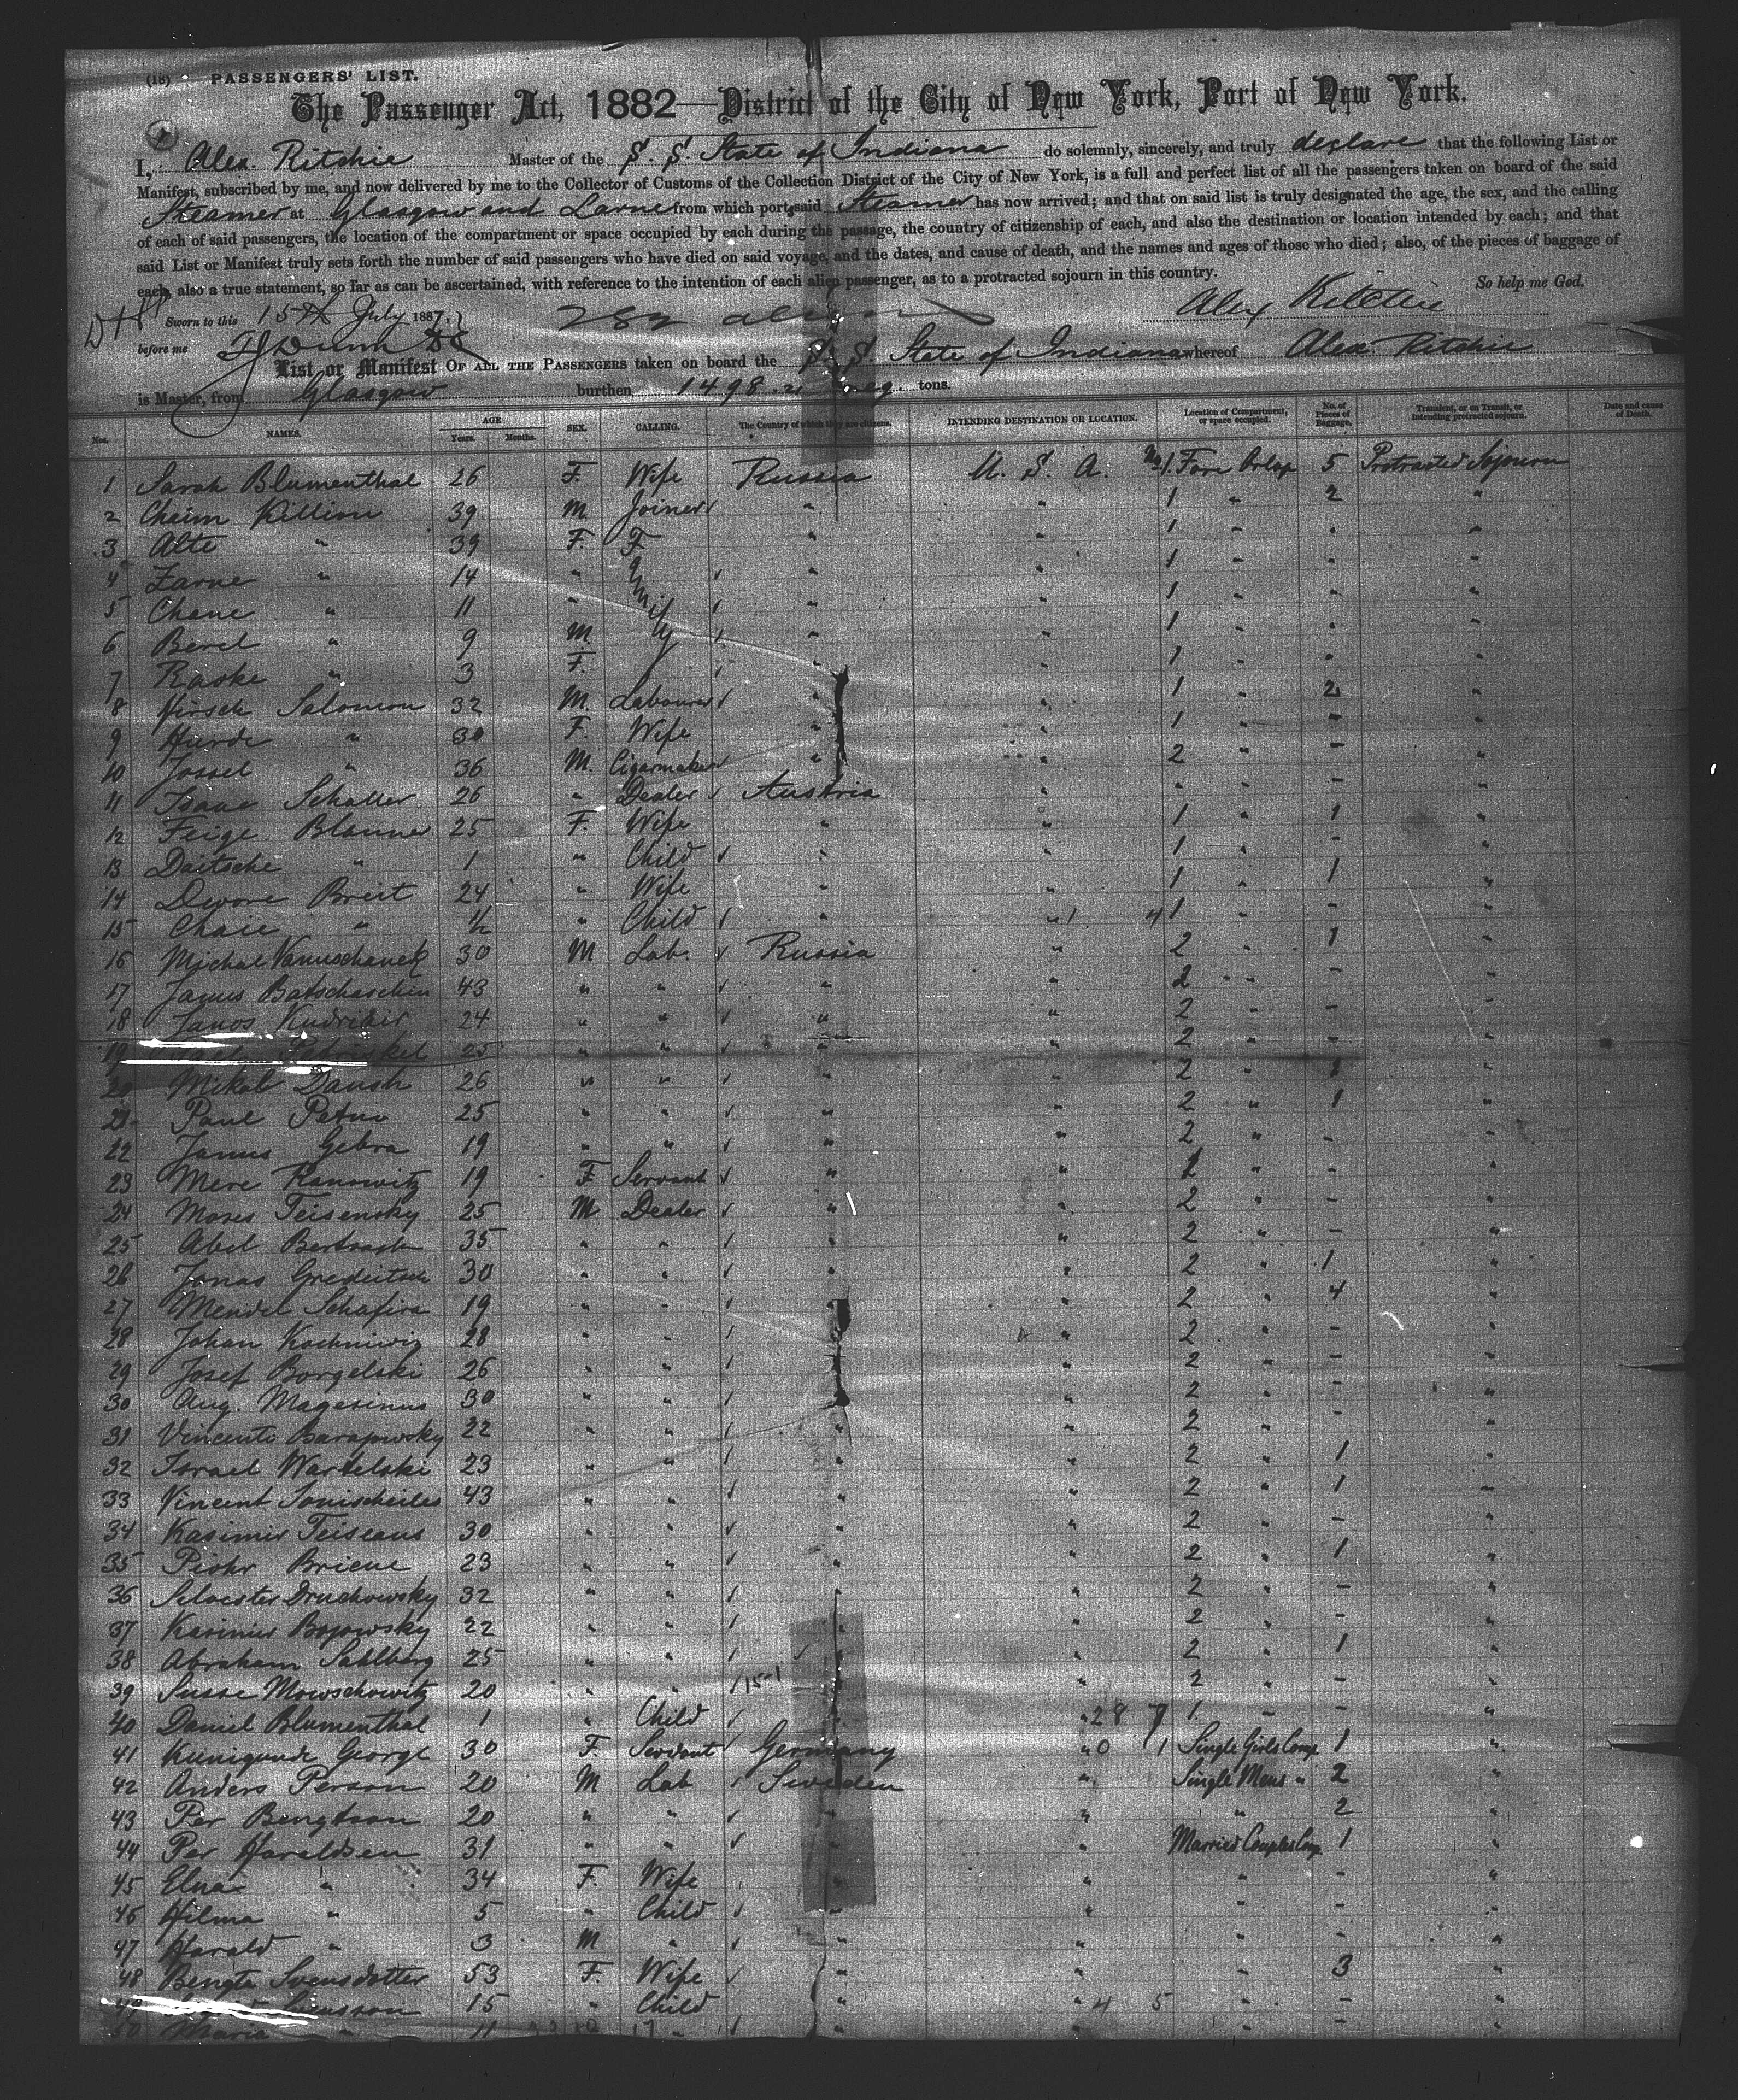 (18) PASSENGERS' LIST.
The Passenger Act, 1882—District of the City of New York, Port of New York.
I, Alex. Ritchie Master of the S. S. State of Indiana do solemnly, sincerely, and truly declare that the following List or
Manifest, subscribed by me, and now delivered by me to the Collector of Customs of the Collection District of the City of New York, is a full and perfect list of all the passengers taken on board of the said
Steamer at Glasgow and Larne from which port said Steamer has now arrived; and that on said list is truly designated the age, the sex, and the calling
of each of said passengers, the location of the compartment or space occupied by each during the passage, the country of citizenship of each, and also the destination or location intended by each; and that
said List or Manifest truly sets forth the number of said passengers who have died on said voyage, and the dates, and cause of death, and the names and ages of those who died; also, of the pieces of baggage of
each, also a true statement, so far as can be ascertained, with reference to the intention of each alien passenger, as to a protracted sojourn in this country. So help me God.
Sworn to this 15th July 1887, Alex Ritchie
before me
List or Manifest OF ALL THE PASSENGERS taken on board the S. S. State of Indiana whereof Alex. Ritchie
is Master, from Glasgow burthen 1498 tons.
Nos. NAMES. AGE Years. Months. SEX. CALLING. The Country of which they are citizens. INTENDING DESTINATION OR LOCATION. Location of Compartment, or space occupied. No. of Pieces of Baggage. Transient, or on Transit, or intending protracted sojourn. Date and cause of Death.
1 Sarah Blumenthal 26 F. Wife Russia U. S. A. No 1 Fore Orlop 5 Protracted Sojourn
2 Chaim Killion 39 M Joiner " " 1 " 2 "
3 Alte " 39 F. Family " " 1 " " "
4 Zarne " 14 " " " 1 " " "
5 Chane " 11 " " " 1 " " "
6 Berel " 9 M. " " 1 " " "
7 Raske " 3 F. " " 1 " " "
8 Hirsch Salomon 32 M. Labourer " " 1 " 2 "
9 " 30 F. Wife " " 1 " - "
10 Jossel " 36 M. Cigarmaker " " 2 " - "
11 Isaac Schaller 26 " Dealer Austria " " " - "
12 Feige Blanne 25 F. Wife " " 1 " 1 "
13 Daitsche " 1 " Child " " 1 " - "
14 Dwore Breit 24 " Wife " " 1 " 1 "
15 Chaie " 1/2 " Child " " 1 4 1 " - "
16 Michal 30 M Lab. Russia " 2 " 1 "
17 Janus Batschaschin 43 " " " " 2 " - "
18 Janos 24 " " " " 2 " - "
19 25 " " " " 2 " - "
20 Mikal Daush 26 " " " " 2 " 1 "
21 Paul Patno 25 " " " " 2 " 1 "
22 Janus Gebra 19 " " " " 2 " - "
23 Mere Kanowitz 19 F Servant " " 1 " - "
24 Moses Teisensky 25 M Dealer " " 2 " - "
25 Abel 35 " " " " 2 " - "
26 Jonas 30 " " " " 2 " 1 "
27 Mendel Schafira 19 " " " " 2 " 4 "
28 Johan 28 " " " " 2 " - "
29 Josef Borgelski 26 " " " " 2 " - "
30 Aug. Magesinus 30 " " " " 2 " - "
31 Vincenti Barajowsky 22 " " " " 2 " - "
32 Israel Wartelski 23 " " " " 2 " 1 "
33 Vincent 43 " " " " 2 " 1 "
34 Kasimir Teiseans 30 " " " " 2 " - "
35 Piohr Briene 23 " " " " 2 " 1 "
36 Silvester Druchowsky 32 " " " " 2 " - "
37 Kasimir Bojowsky 22 " " " " 2 " - "
38 Abraham Sahlberg 25 " " " " 2 " 1 "
39 Susse Mowschowitz 20 " " 15-1 " " 2 " - "
40 Daniel Blumenthal 1 " Child " " 28 7 1 " - "
41 Kunigunde George 30 F. Servant Germany " 0 1 Single Girls Comp 1 "
42 Anders Person 20 M Lab Sweden " Single Mens " 2 "
43 Per Bengtson 20 " " " " " 2 "
44 Per Haraldsen 31 " " " " Married Couples Comp 1 "
45 Elna " 34 F. Wife " " " - "
46 Hilma " 5 " Child " " " - "
47 Harald " 3 M " " " " - "
48 Bengta Svensdotter 53 F. Wife " " " 3 "
49 Svensson 15 " Child " " 4 5 " - "
50 Maria " 11 " " " - "